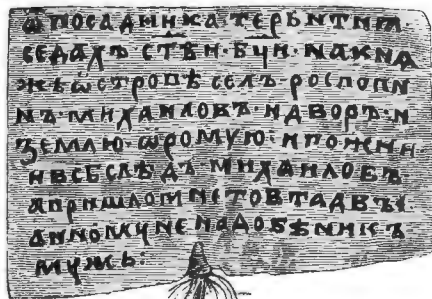 Ѿ посадника терентиꙗ
се далъ · ст҃ѣи · бц҃и · накнѧ
жѣѡстровѣ селъ · роспопи
нъ · михаиловъ · идворъ · и
землю · ѡромую : ипожни ·
ивсьслѣдъ михаиловъ ·
апришломине товтадвъ
анномучене надобѣникъ
мужь :